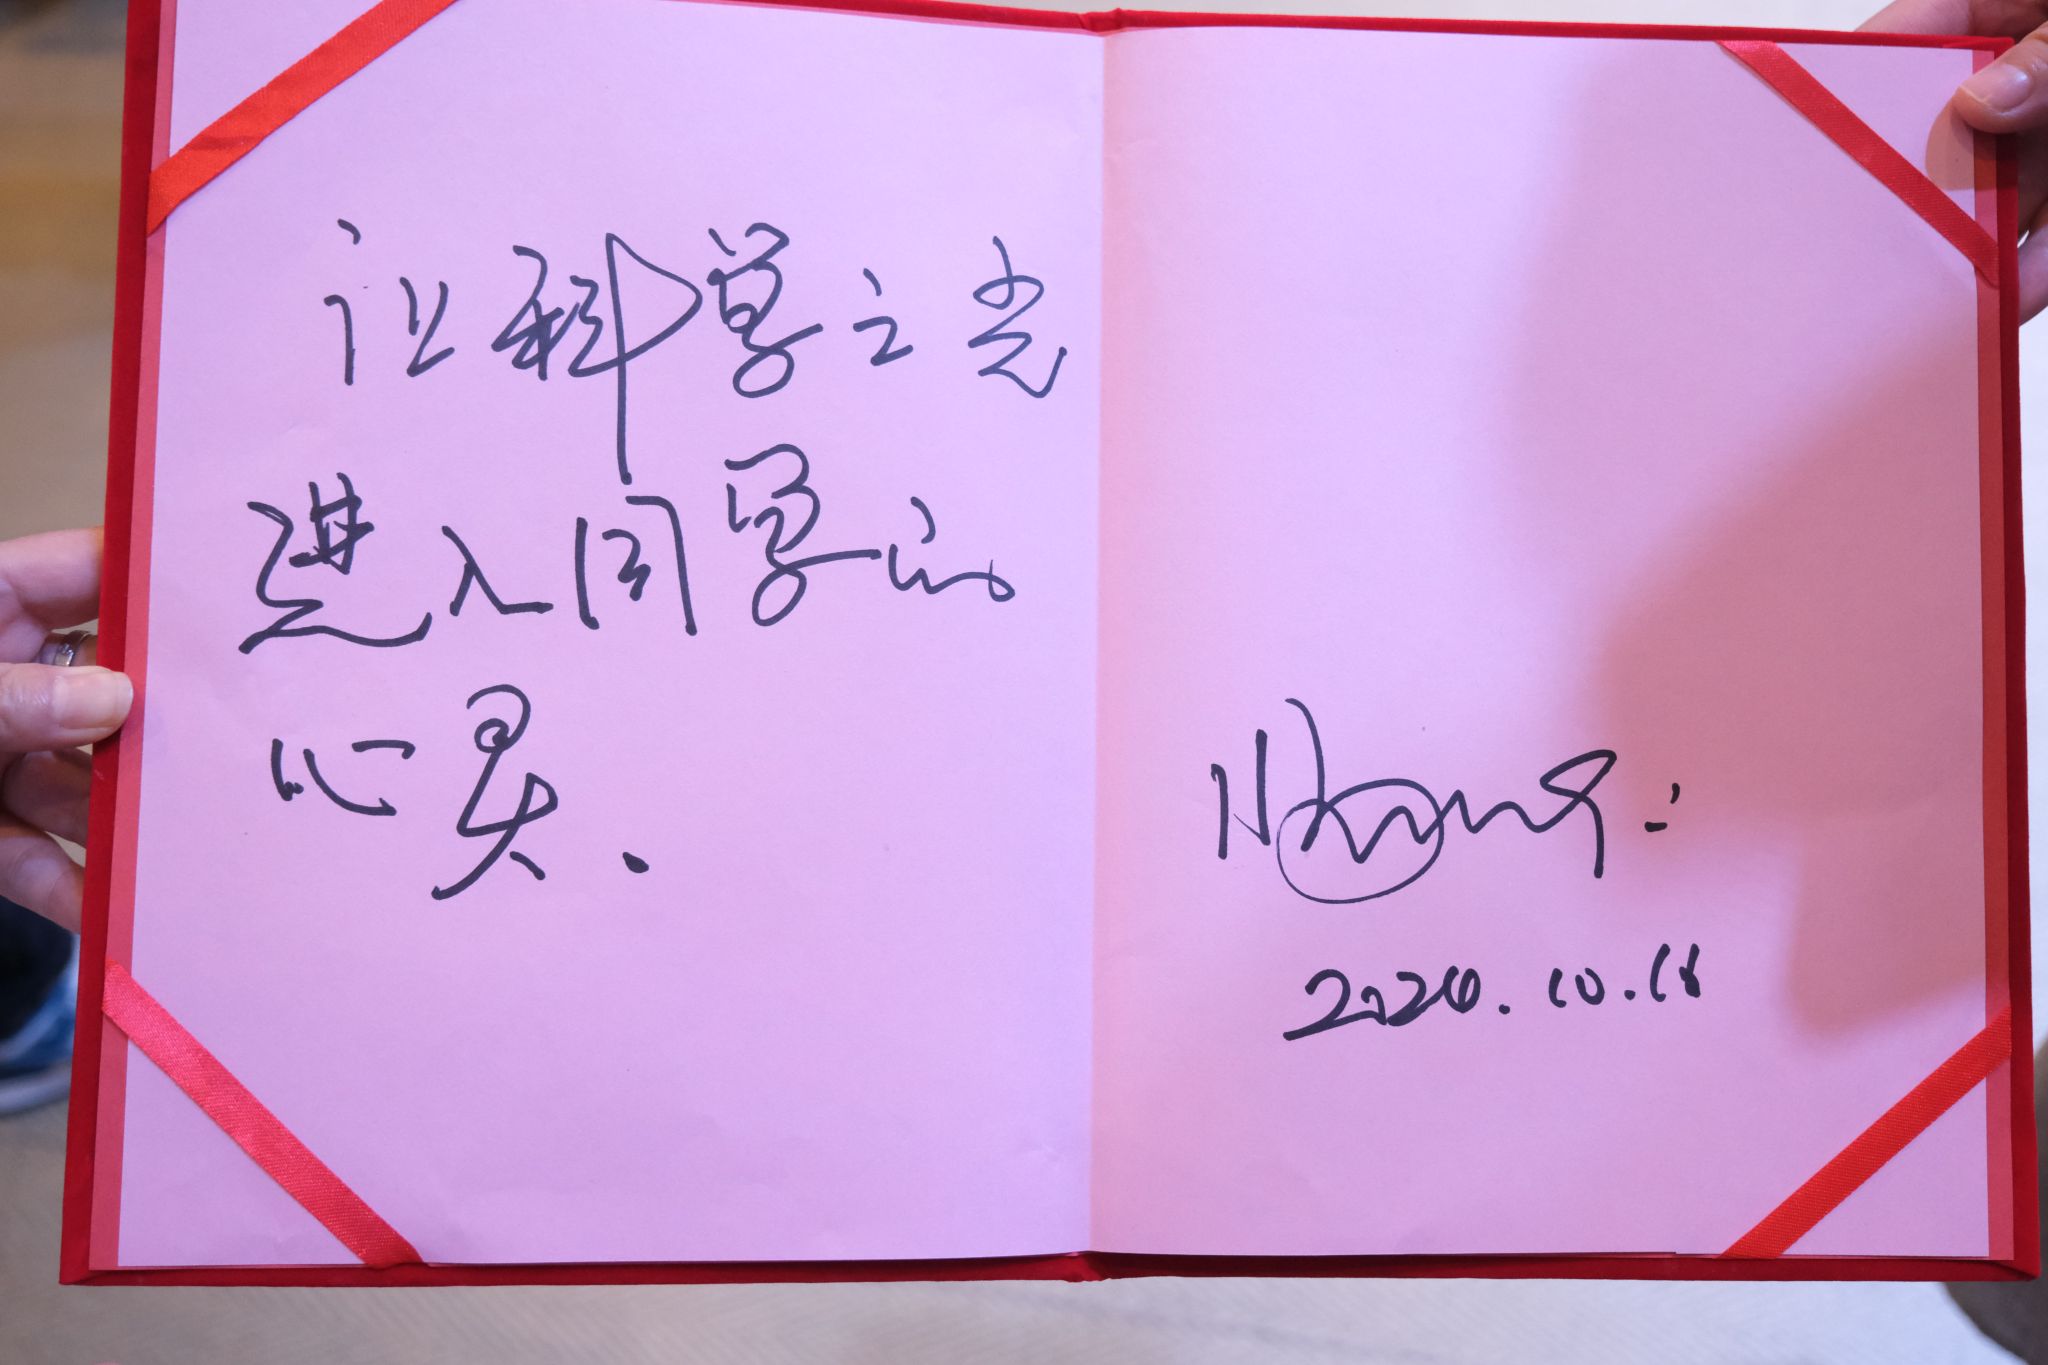 让科学之光
进入同学的
心灵.
2020.10.18